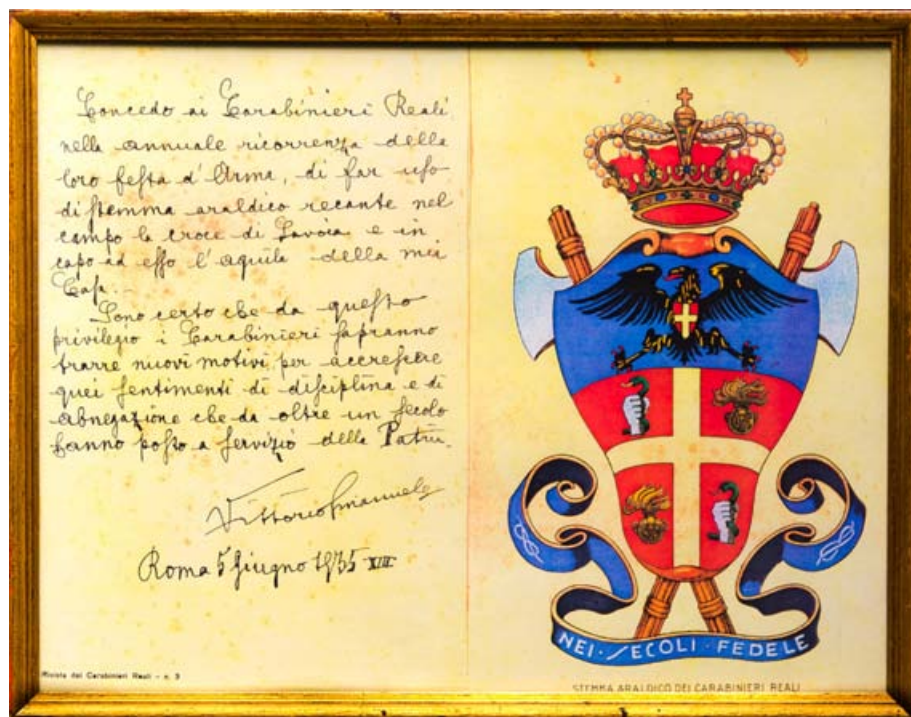 Concedo ai Carabinieri Reali,
nella annuale ricorrenza della
loro festa d'Arma, di far uso
di stemma araldico recante nel
campo la croce di Savoia e in
capo ad esso l'aquila della mia
Casa.
Sono certo che da questo
privilegio i Carabinieri sapranno
trarre nuovi motivi per accrescere
quei sentimenti di disciplina e di
abnegazione che da oltre un secolo
hanno posto a servizio della Patria.
Vittorio Emanuele
Roma 5 Giugno 1935 XIII
Rivista dei Carabinieri Reali - n. 3
NEI · SECOLI · FEDELE
STEMMA ARALDICO DEI CARABINIERI REALI